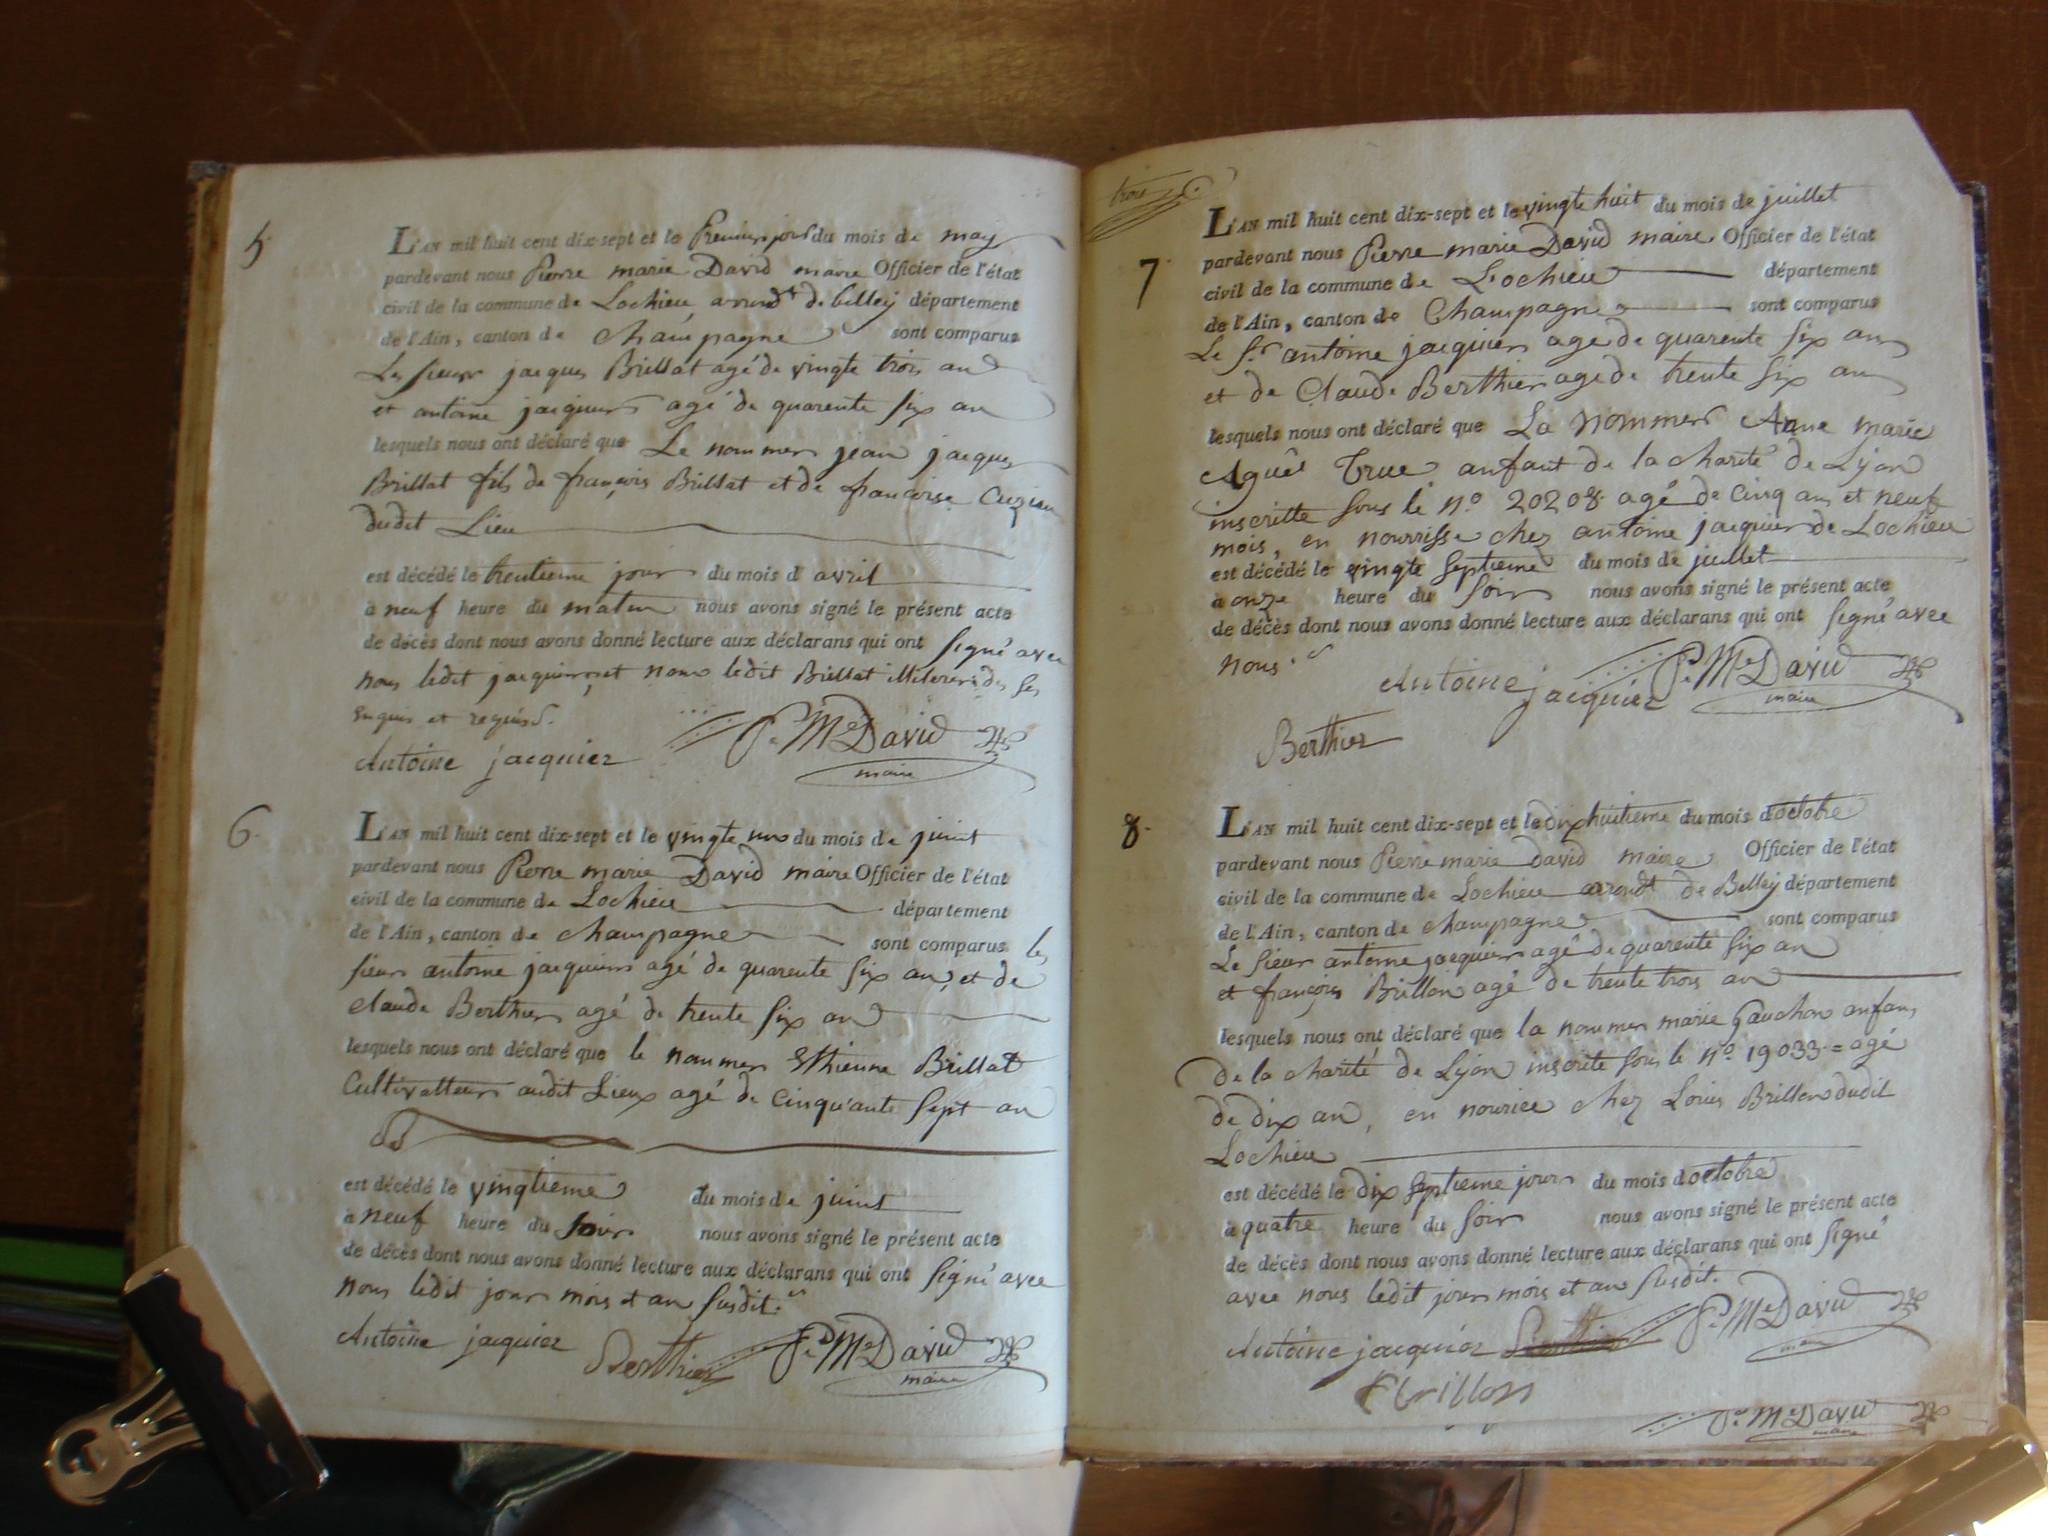 5.
L'AN mil huit cent dix-sept et le Premier jour du mois de may
pardevant nous Pierre marie David maire Officier de l'état
civil de la commune de Lochieu arrondt de belley département
de l'Ain, canton de Champagne sont comparus
Les sieur jacques Brillat agé de vingte trois an
et antoine jacquier agé de quarente six an
lesquels nous ont déclaré que Le nommer jean jacques
Brillat fils de françois Brillat et de francoise
dudit Lieu
est décédé le trentieme jour du mois d avril
à neuf heure du matin nous avons signé le présent acte
de décès dont nous avons donné lecture aux déclarans qui ont signé avec
nous ledit jacquier et non ledit Brillat
enquis et requis.
Antoine jacquier P. Me David
maire
6.
L'AN mil huit cent dix-sept et le vingte un du mois de juint
pardevant nous Pierre marie David maire Officier de l'état
civil de la commune de Lochieu département
de l'Ain, canton de Champagne sont comparus les
sieur antoine jacquier agé de quarente six an et de
claude Berthier agé de trente six an
lesquels nous ont déclaré que le nommer Ethienne Brillat
Cultivatteur audit Lieux agé de cinqu'ante sept an
est décédé le vingtieme du mois de juint
à neuf heure du soir nous avons signé le présent acte
de décès dont nous avons donné lecture aux déclarans qui ont signé avec
nous ledit jour mois et an susdit.
Antoine jacquier Berthier P. Me David
maire
trois
7.
L'AN mil huit cent dix-sept et le vingte huit du mois de juillet
pardevant nous Pierre marie David maire Officier de l'état
civil de la commune de Lochieu département
de l'Ain, canton de Champagne sont comparus
Le Sr antoine jacquier age de quarente six an
et de Claude Berthier age de trente six an
lesquels nous ont déclaré que La nommer Anne marie
Agnès True anfant de la charité de Lyon
inscritte sous le no 20208 agé de cinq an et neuf
mois, en nourrisse chez antoine jacquier de Lochieu
est décédé le vingte septieme du mois de juillet
à onze heure du soir nous avons signé le présent acte
de décès dont nous avons donné lecture aux déclarans qui ont signé avec
nous.
Antoine jacquier P. Me David
maire
Berthier
8.
L'AN mil huit cent dix-sept et le dix huitieme du mois d'octobre
pardevant nous Pierre marie david maire Officier de l'état
civil de la commune de Lochieu arrondt de Belley département
de l'Ain, canton de champagne sont comparus
Le sieur antoine jacquier agé de quarente six an
et françois Brillon agé de trente trois an
lesquels nous ont déclaré que la nommer marie Gauchon anfan
de la charité de Lyon inscrite sous le no 19033 = agé
de dix an, en nourice chez Louis Brillon dudit
Lochieu
est décédé le dix septieme jour du mois d'octobre
à quatre heure du soir nous avons signé le présent acte
de décès dont nous avons donné lecture aux déclarans qui ont signé
avec nous ledit jour mois et an susdit.
Antoine jacquier P. Me David
f brillon
P. Me David
maire